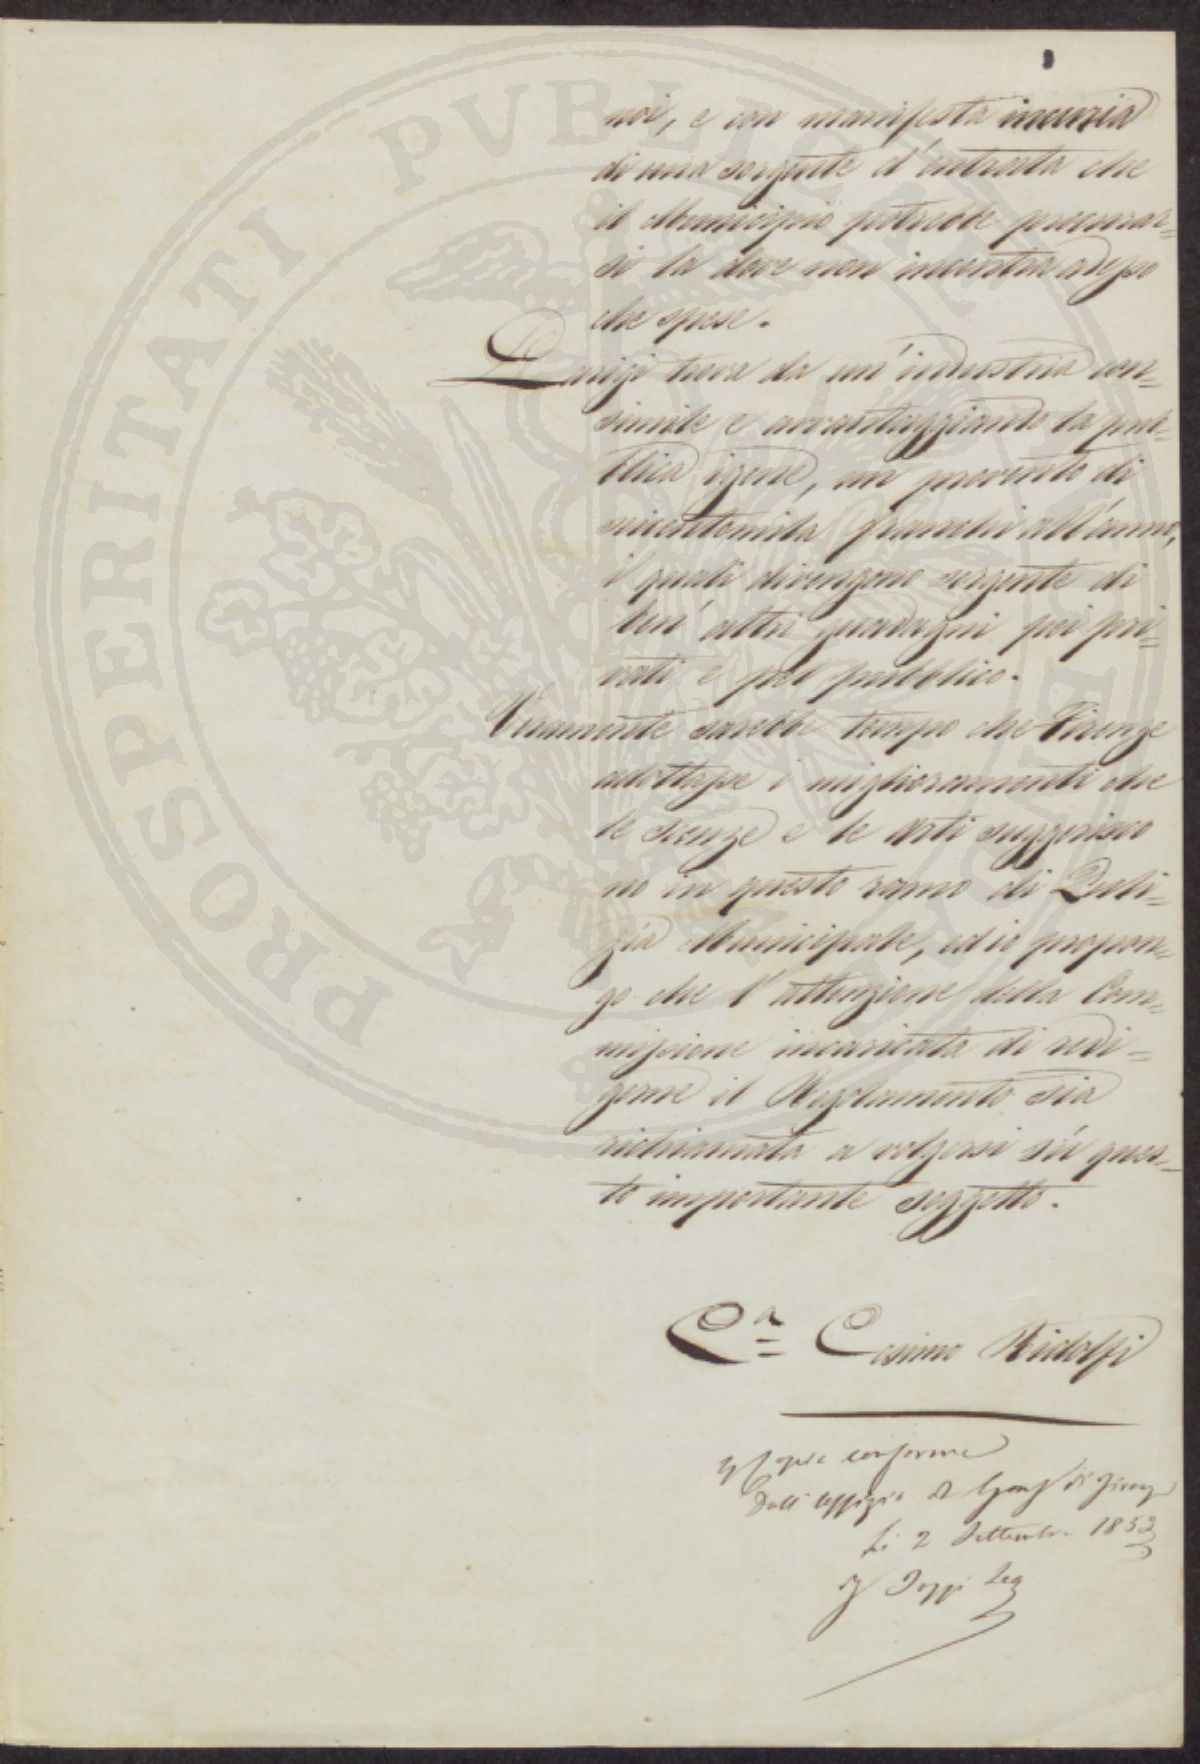 noi, e con manifesta incuria
di una sorgente d'entrata che
il Municipio potrebbe procurar=
si la dove non incontra adesso
che spese.
Parigi trova da un' industria con=
simile e avvantaggiando la pub=
blica igene, un provento di
seicentomila franchi all'anno,
i quali divengono sorgente di
ben' altri guadagni pei pri=
vati e pel pubblico.
Veramente sarebbe tempo che Firenze
adottasse i miglioramenti che
le scenze e le arti suggerisco
no in questo ramo di Puli=
zia Municipale, ed io propon=
go che l'attenzione della Com=
missione incaricata di redi=
gerne il Regolamento sia
richiamata a volgersi sù ques=
to importante soggetto.
Cosimo Ridolfi
Copia conforme
Dall' Uffizio di Gonf di Firenze
Li 2 Settembre 1852
PROSPERITATI PUBLICAE